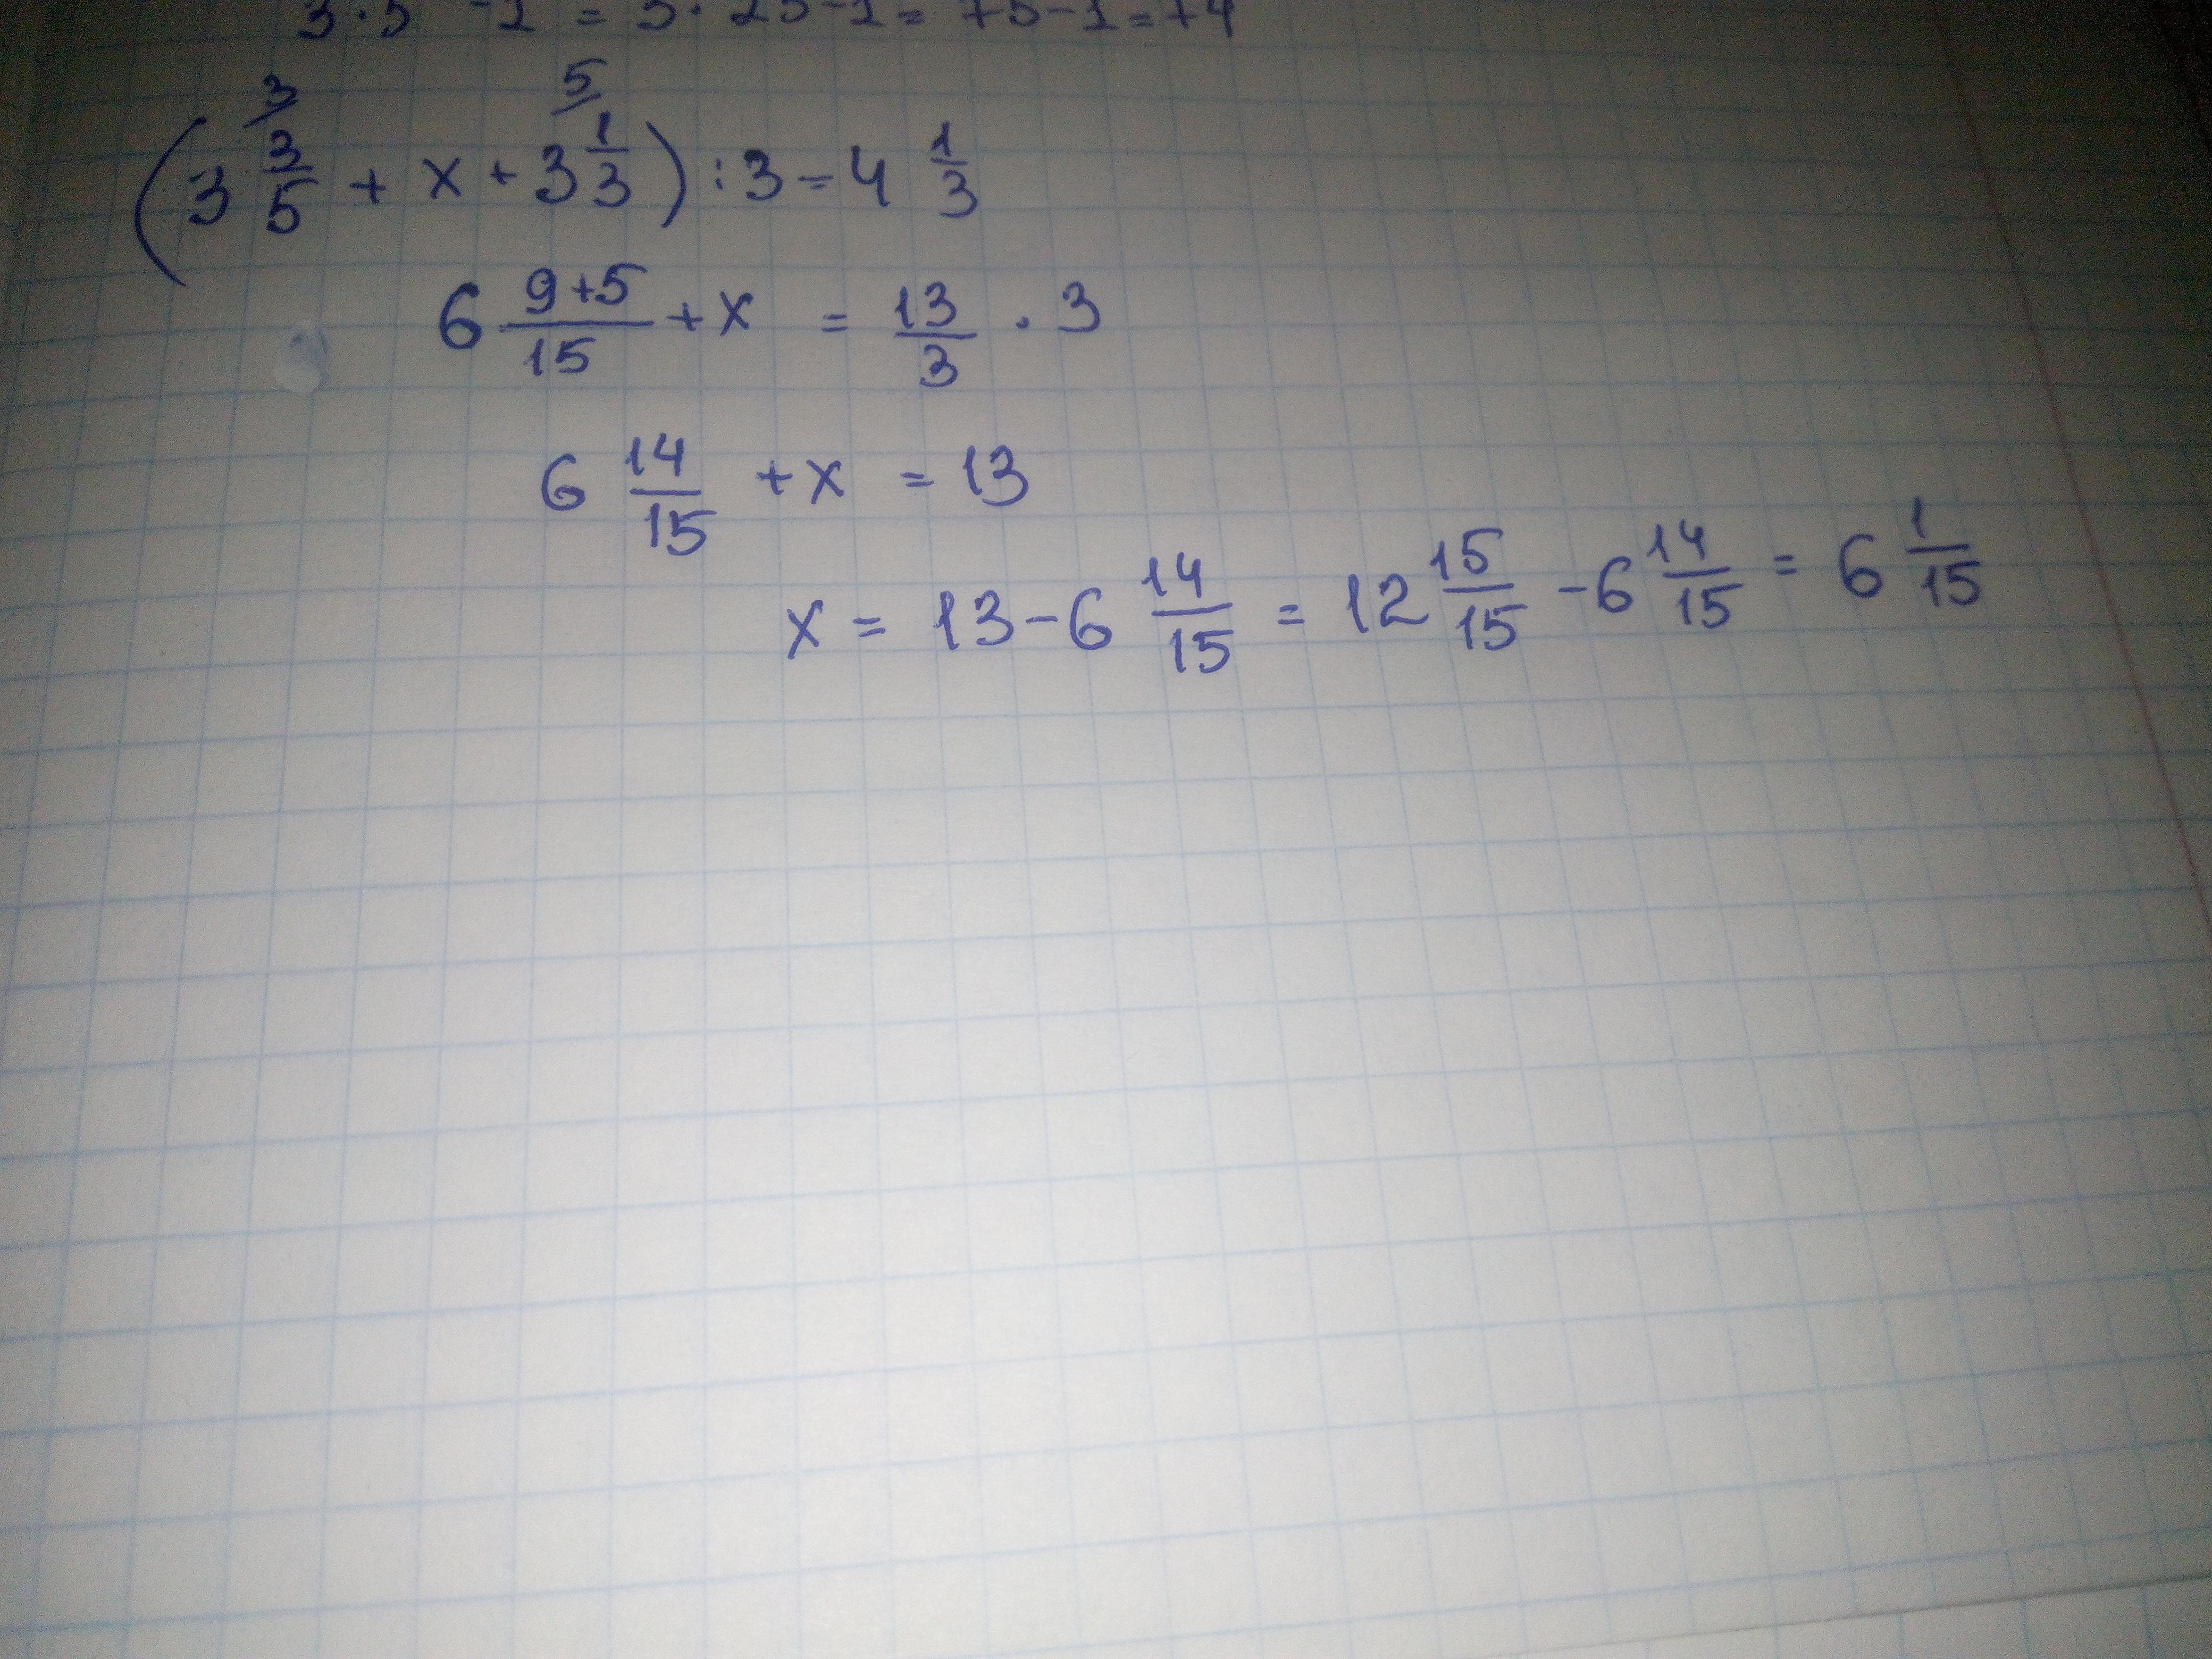 3·5 -1 = 3·25-1= 75-1=74
(3 3/5 + x + 3 1/3) : 3 = 4 1/3
6 (9+5)/15 + x = 13/3 · 3
6 14/15 + x = 13
x = 13 - 6 14/15 = 12 15/15 - 6 14/15 = 6 1/15